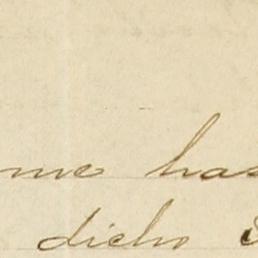 me has
dicho